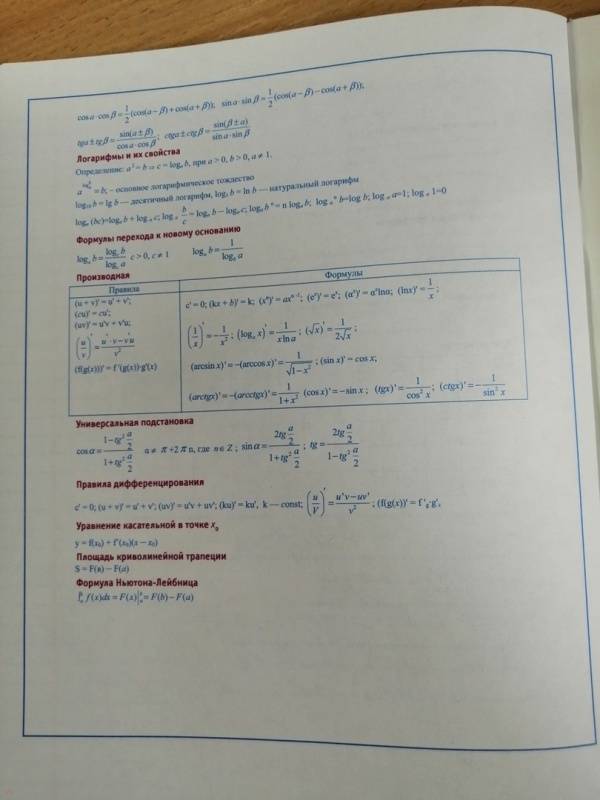 cosα·cosβ=1/2(cos(α−β)+cos(α+β)); sinα·sinβ=1/2(cos(α−β)−cos(α+β));
tgα±tgβ=sin(α±β)/cosα·cosβ; ctgα±ctgβ=sin(β±α)/sinα·sinβ
Логарифмы и их свойства
Определение: aᶜ=b ⇒ c=logₐb, при a>0, b>0, a≠1.
a^(logₐb)=b; – основное логарифмическое тождество
log₁₀b = lg b — десятичный логарифм, logₑb = ln b — натуральный логарифм
logₐ(bc)=logₐb+logₐc; logₐ b/c = logₐb−logₐc; logₐbⁿ = n logₐb; logₐⁿb=log b; logₐa=1; logₐ1=0
Формулы перехода к новому основанию
logₐb = log꜀b/log꜀a c>0, c≠1 logₐb = 1/log_b a
Производная
Правила
Формулы
(u + v)' = u' + v';
(cu)' = cu';
(uv)' = u'v + v'u;
(u/v)' = u'·v−v'u/v²
(f(g(x)))' = f '(g(x))·g'(x)
c' = 0; (kx + b)' = k; (xᵃ)' = axᵃ⁻¹; (eˣ)' = eˣ; (αˣ)' = αˣlnα; (lnx)' = 1/x;
(1/x)' = −1/x²; (logₐx)' = 1/xlna; (√x)' = 1/2√x;
(arcsin x)' = −(arccos x)' = 1/√1−x²; (sin x)' = cos x;
(arctgx)' = −(arcctgx)' = 1/1+x² (cos x)' = −sin x; (tgx)' = 1/cos²x; (ctgx)' = −1/sin²x
Универсальная подстановка
cosα = 1−tg² a/2 / 1+tg² a/2 a≠ π+2πn, где n∈Z; sinα = 2tg a/2 / 1+tg² a/2; tg = 2tg a/2 / 1−tg² a/2
Правила дифференцирования
c' = 0; (u + v)' = u' + v'; (uv)' = u'v + uv'; (ku)' = ku', k — const; (u/V)' = u'v−uv'/v²; (f(g(x))' = f 'g·g'ₓ
Уравнение касательной в точке x₀
y = f(x₀) + f'(x₀)(x – x₀)
Площадь криволинейной трапеции
S = F(в) – F(a)
Формула Ньютона-Лейбница
∫ₐᵇ f(x)dx = F(x)|ₐᵇ = F(b) – F(a)